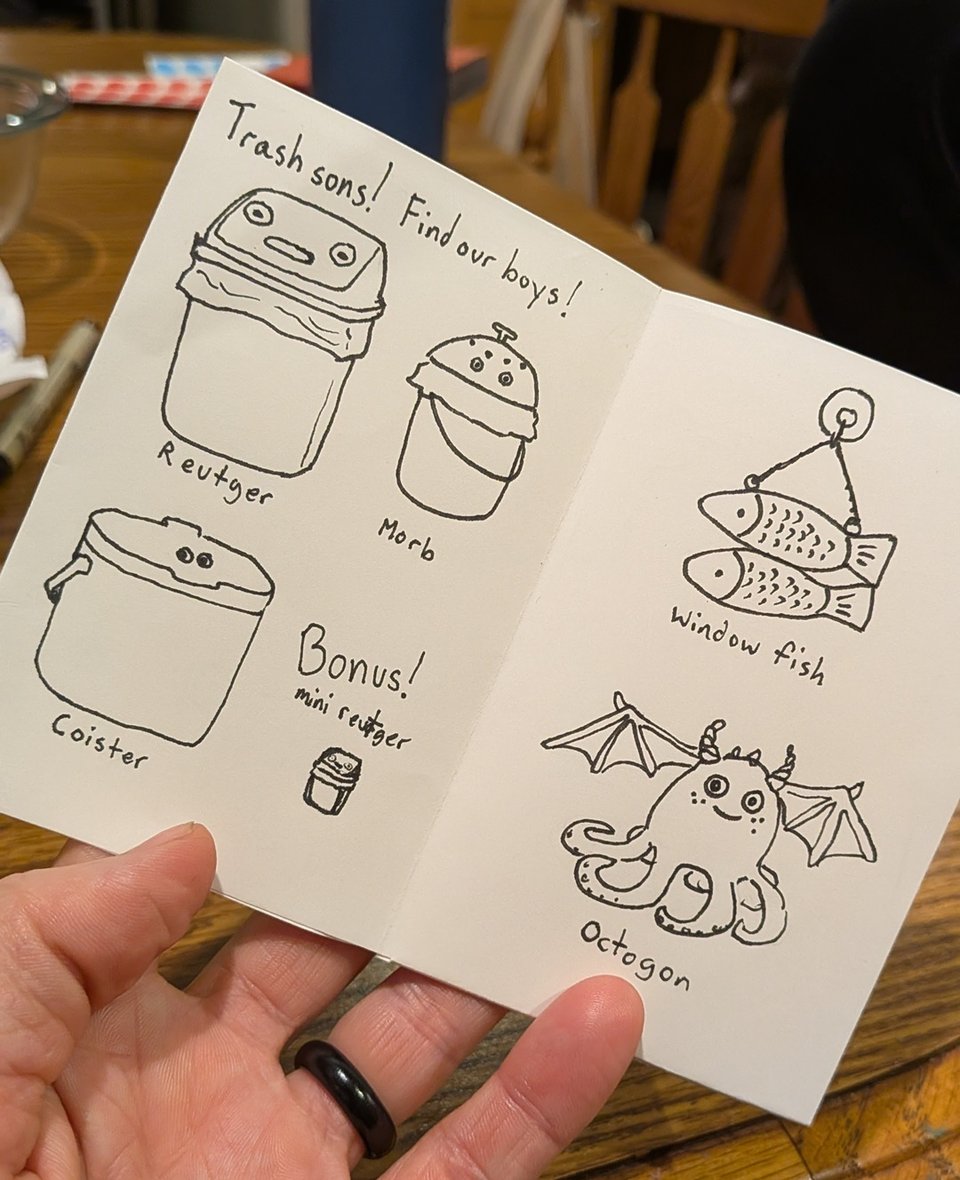 Trash sons! Find our boys!
Reutger
Morb
Coister
Bonus!
mini reutger
Window fish
Octogon